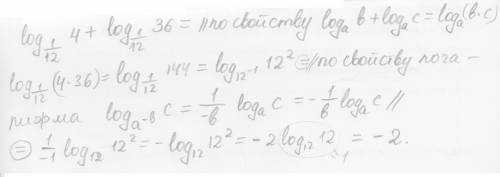 log_{1/12} 4 + log_{1/12} 36 = // по свойству log_a b + log_a c = log_a (b·c)
log_{1/12} (4·36) = log_{1/12} 144 = log_{12^{-1}} 12² = // по свойству лога-
рифма log_{a^{-b}} c = \frac{1}{-b} log_a c = -\frac{1}{b} log_a c //
= \frac{1}{-1} log_{12} 12² = -log_{12} 12² = -2 log_{12} 12 = -2.
1